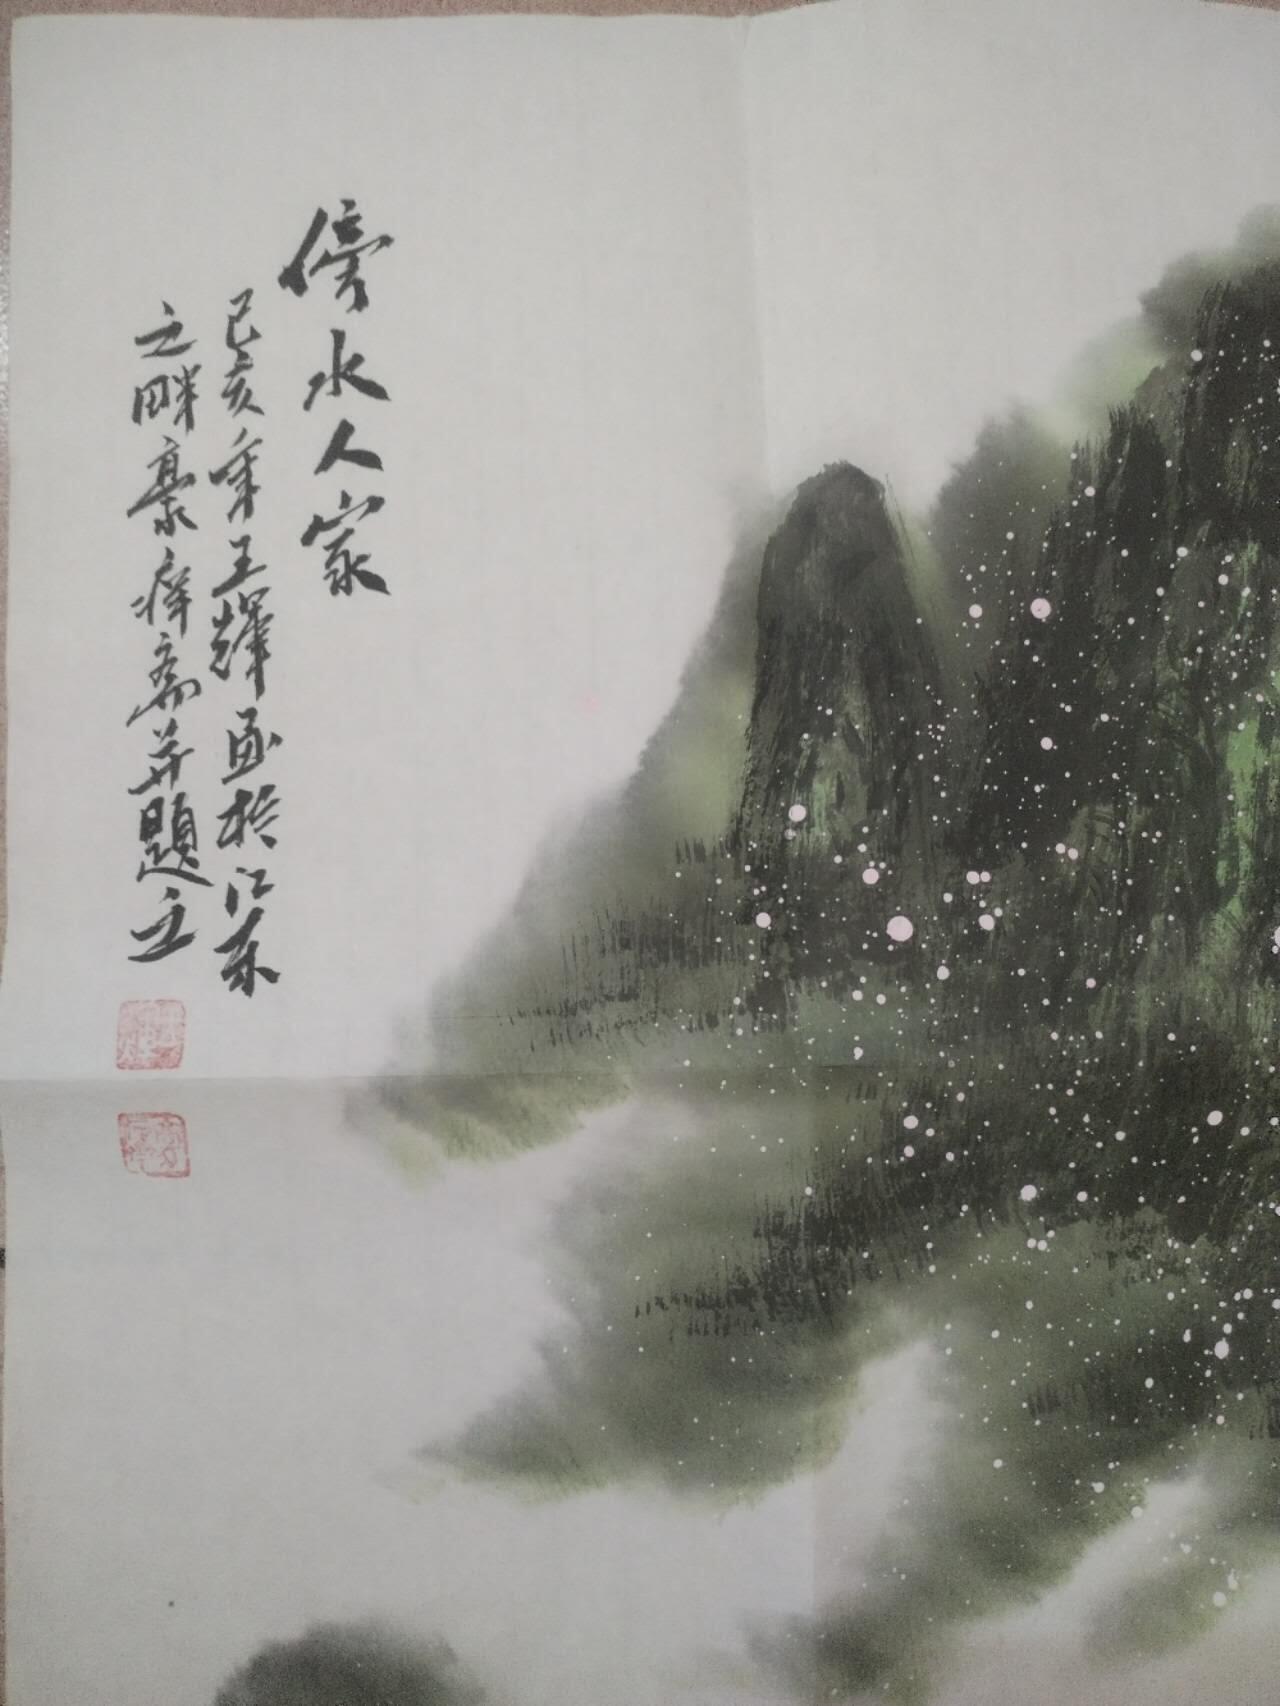 傍水人家
己亥年王輝画於江东
之畔豪痒斋并題之